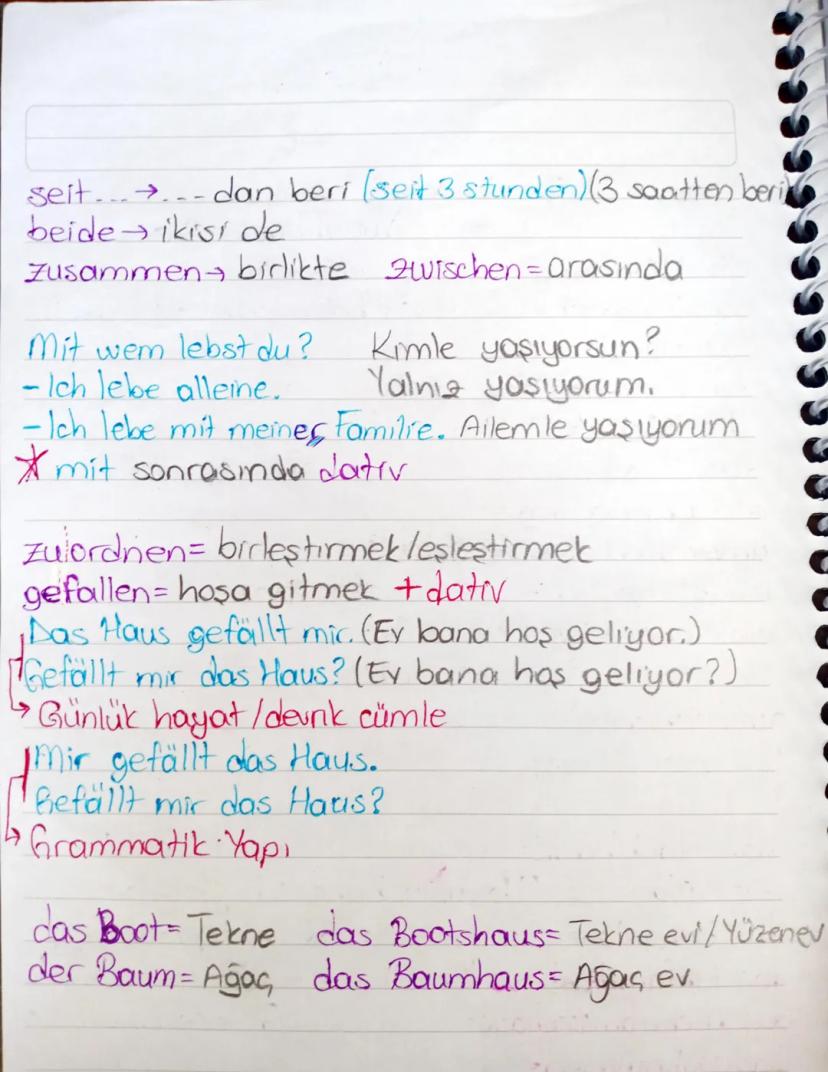 seit... → ... dan beri (seit 3 stunden) (3 saatten beri)
beide → ikisi de
zusammen → birlikte zwischen = arasında
Mit wem lebst du? Kimle yaşıyorsun?
- Ich lebe alleine. Yalnız yaşıyorum.
- Ich lebe mit meiner Familie. Ailemle yaşıyorum
* mit sonrasında dativ
zuordnen = birleştirmek / eşleştirmek
gefallen = hoşa gitmek + dativ
Das Haus gefällt mir. (Ev bana hoş geliyor.)
Gefällt mir das Haus? (Ev bana hoş geliyor?)
→ Günlük hayat / devrik cümle
Mir gefällt das Haus.
Gefällt mir das Haus?
→ Grammatik Yapı
das Boot = Tekne das Bootshaus = Tekne evi / Yüzenev
der Baum = Ağaç das Baumhaus = Ağaç ev.